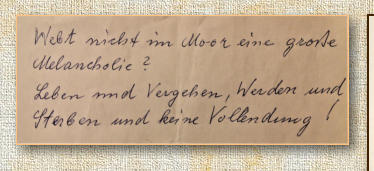 Webt nicht im Moor eine große
Melancholie?
Leben und Vergehen, Werden und
Sterben und keine Vollendung!